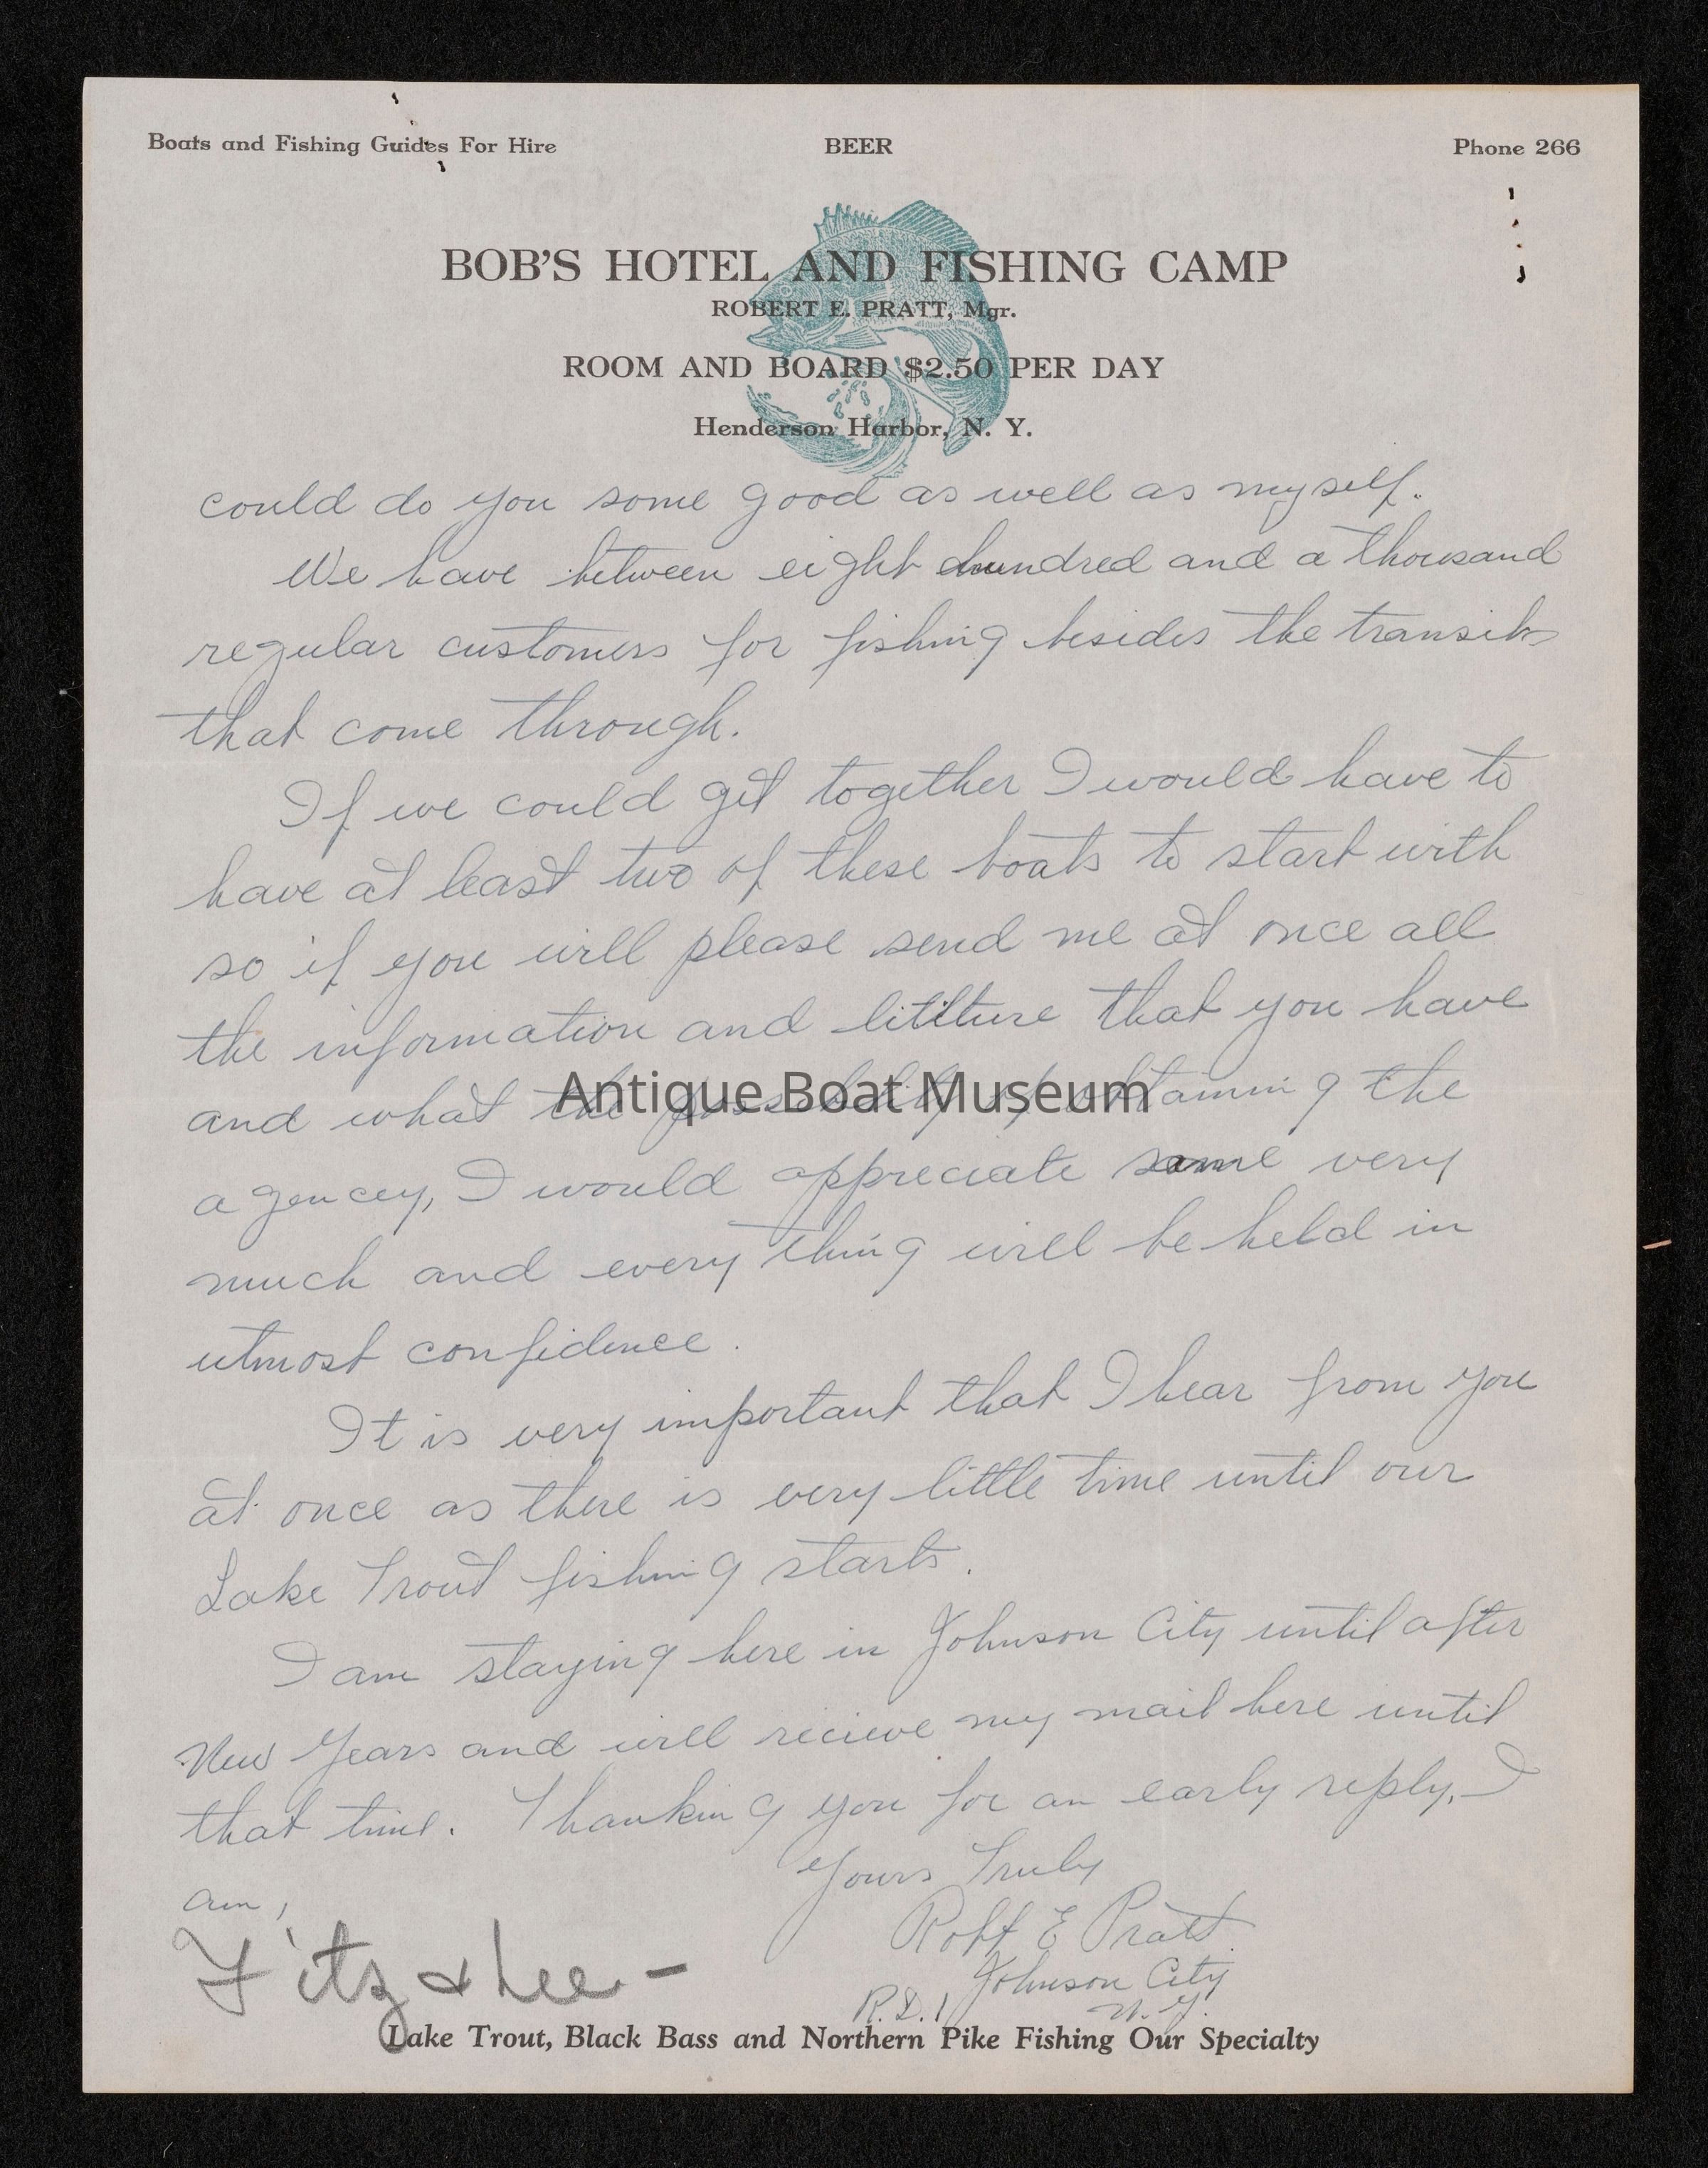 Boats and Fishing Guides For Hire BEER Phone 266
BOB'S HOTEL AND FISHING CAMP
ROBERT E. PRATT, Mgr.
ROOM AND BOARD $2.50 PER DAY
Henderson Harbor, N. Y.
could do you some good as well as myself.
We have between eight hundred and a thousand
regular customers for fishing besides the transits
that come through.
If we could get together I would have to
have at least two of these boats to start with
so if you will please send me at once all
the information and litilture that you have
and what the possibility of obtaining the
agencey, I would appreciate same very
much and every thing will be held in
utmost confidence.
It is very important that I hear from you
at once as there is very little time until our
Lake Trout fishing starts.
I am staying here in Johnson City until after
New Years and will recieve my mail here until
that time. Thanking you for an early reply, I
am,
Yours Truly
Robt E Pratt
Johnson City
R.D. 1 N.Y.
Fitz & Lee -
Lake Trout, Black Bass and Northern Pike Fishing Our Specialty
Antique Boat Museum